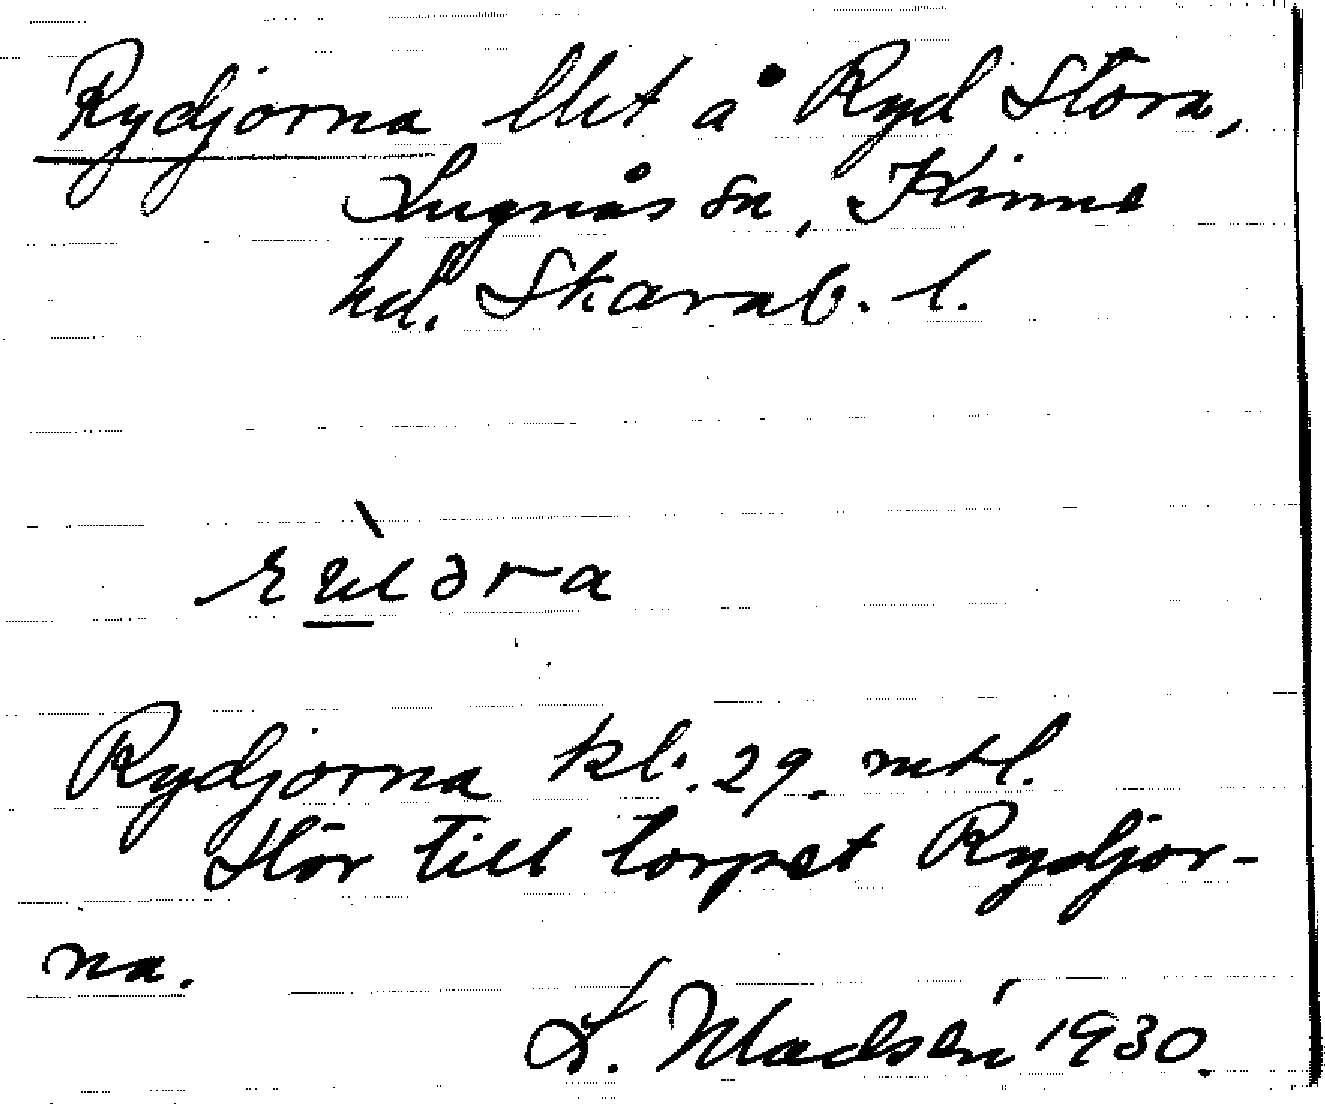 Rydjorna llet å Ryd Stora,
Lugnås sn, Kinne
hd. Skarab. l.
Rydjorna kl. 29. mtl.
Hör till torpet Rydjor-
na.
L. Madsén 1930.